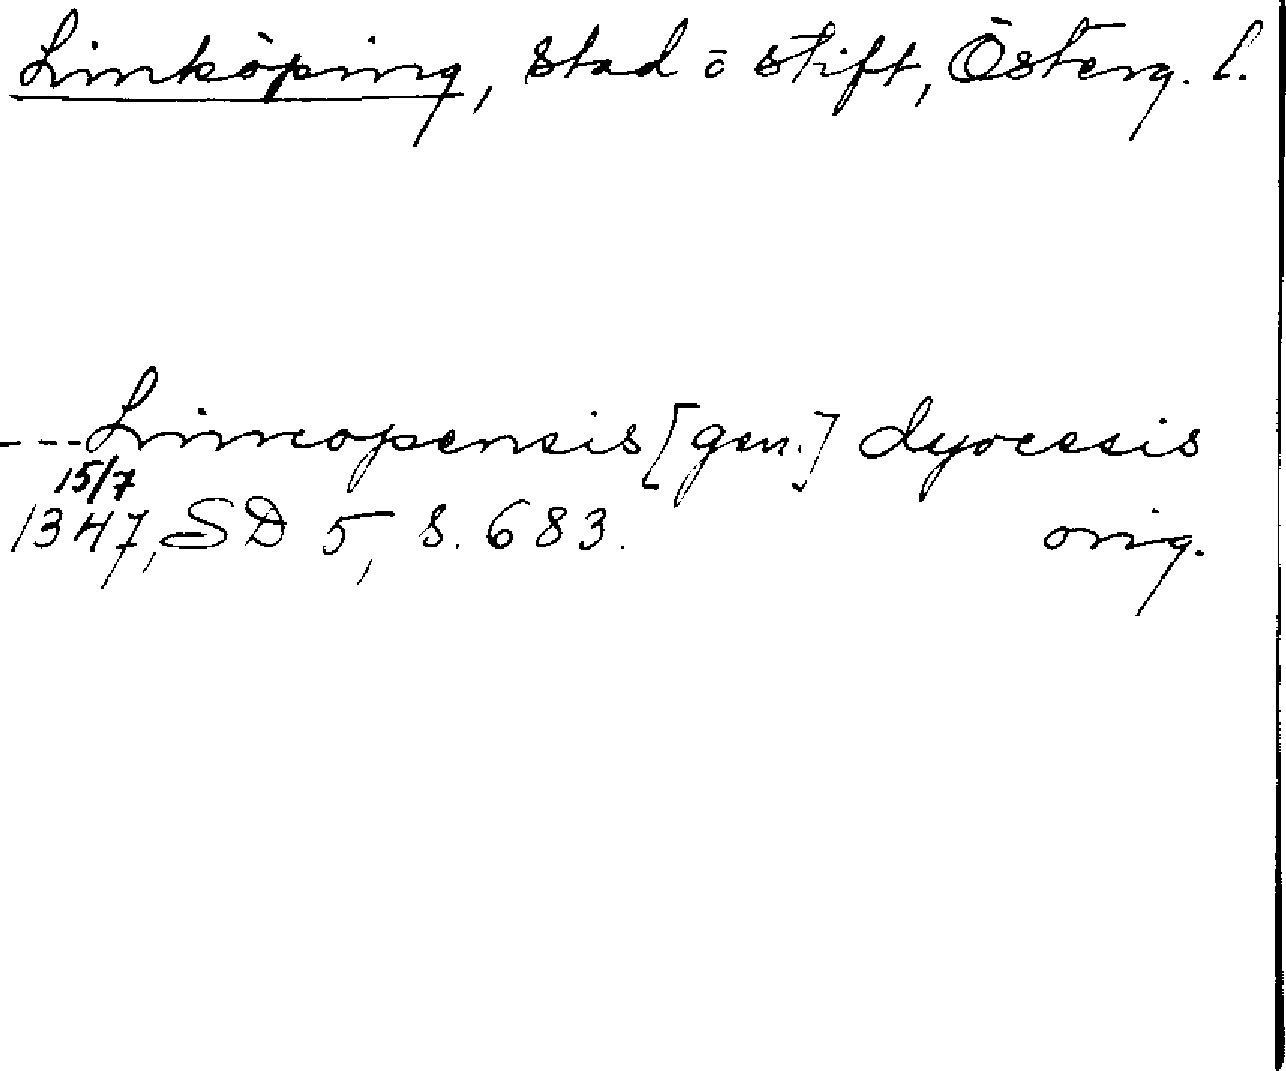 Linköping, stad o stift, Österg. l.
---Lincopensis [gen.] dyocesis
15/7
1347, SD 5, s. 683. orig.